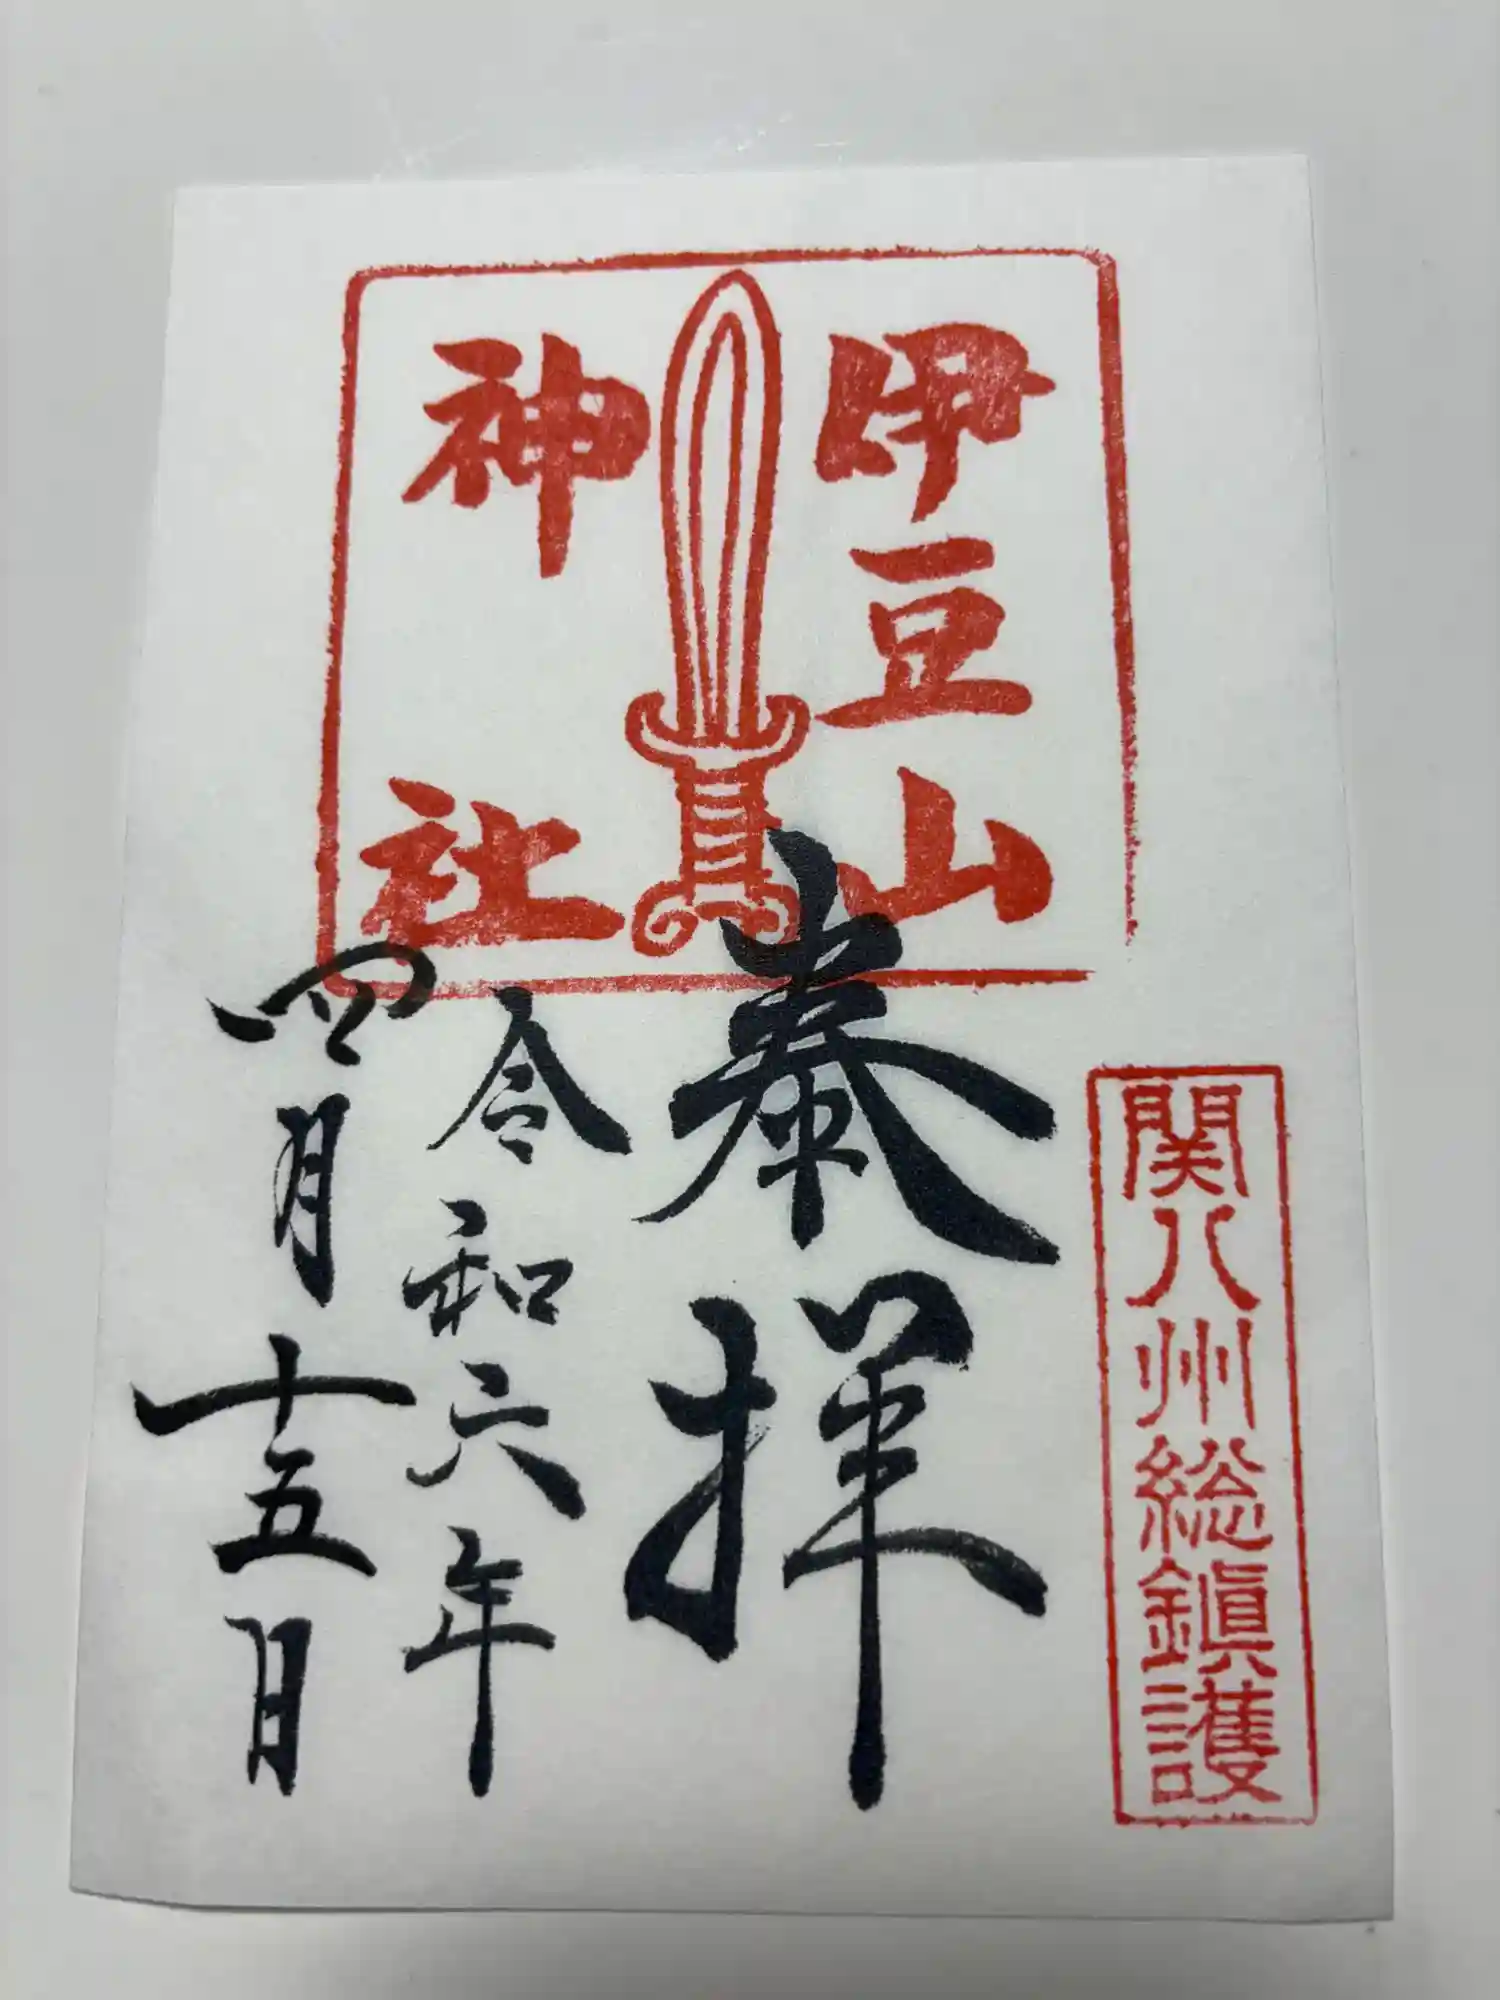 関八州総鎮護
伊豆山
神社
奉拝
令和六年
四月十五日